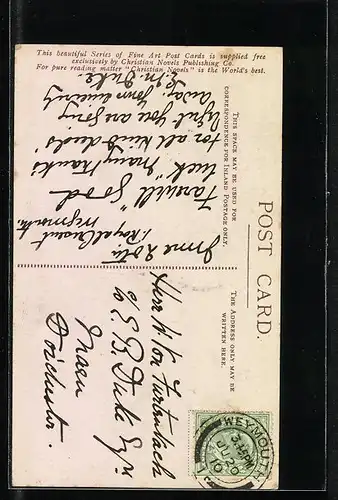 This beautiful Series of Fine Art Post Cards is supplied free
exclusively by Christian Novels Publishing Co.
For pure reading matter "Christian Novels" is the World's best.
POST CARD.
THIS SPACE MAY BE USED FOR
CORRESPONDENCE FOR INLAND POSTAGE ONLY.
THE ADDRESS ONLY MAY BE
WRITTEN HERE.
1. Royal Crescent
Weymouth.
Farewell "good
luck" many thanks
for all kind deeds.
you are going
away. Yours sincerely
Duke.
Herr W. Von
c/o E B Duke Esqre
Dorchester.
WEYMOUTH
3.45 PM